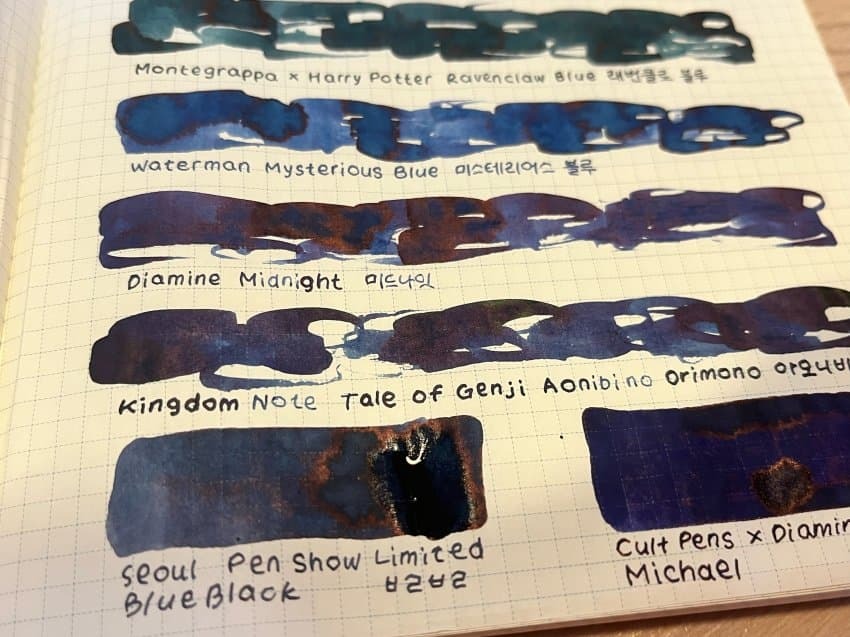 Montegrappa × Harry Potter Ravenclaw Blue 래번클로 블루
Waterman Mysterious Blue 미스테리어스 블루
Diamine Midnight 미드나잇
Kingdom Note Tale of Genji Aonibino Orimono 아오니비
Seoul Pen Show Limited
Blue Black ㅂㄹㅂㄹ
Cult Pens × Diamin
Michael